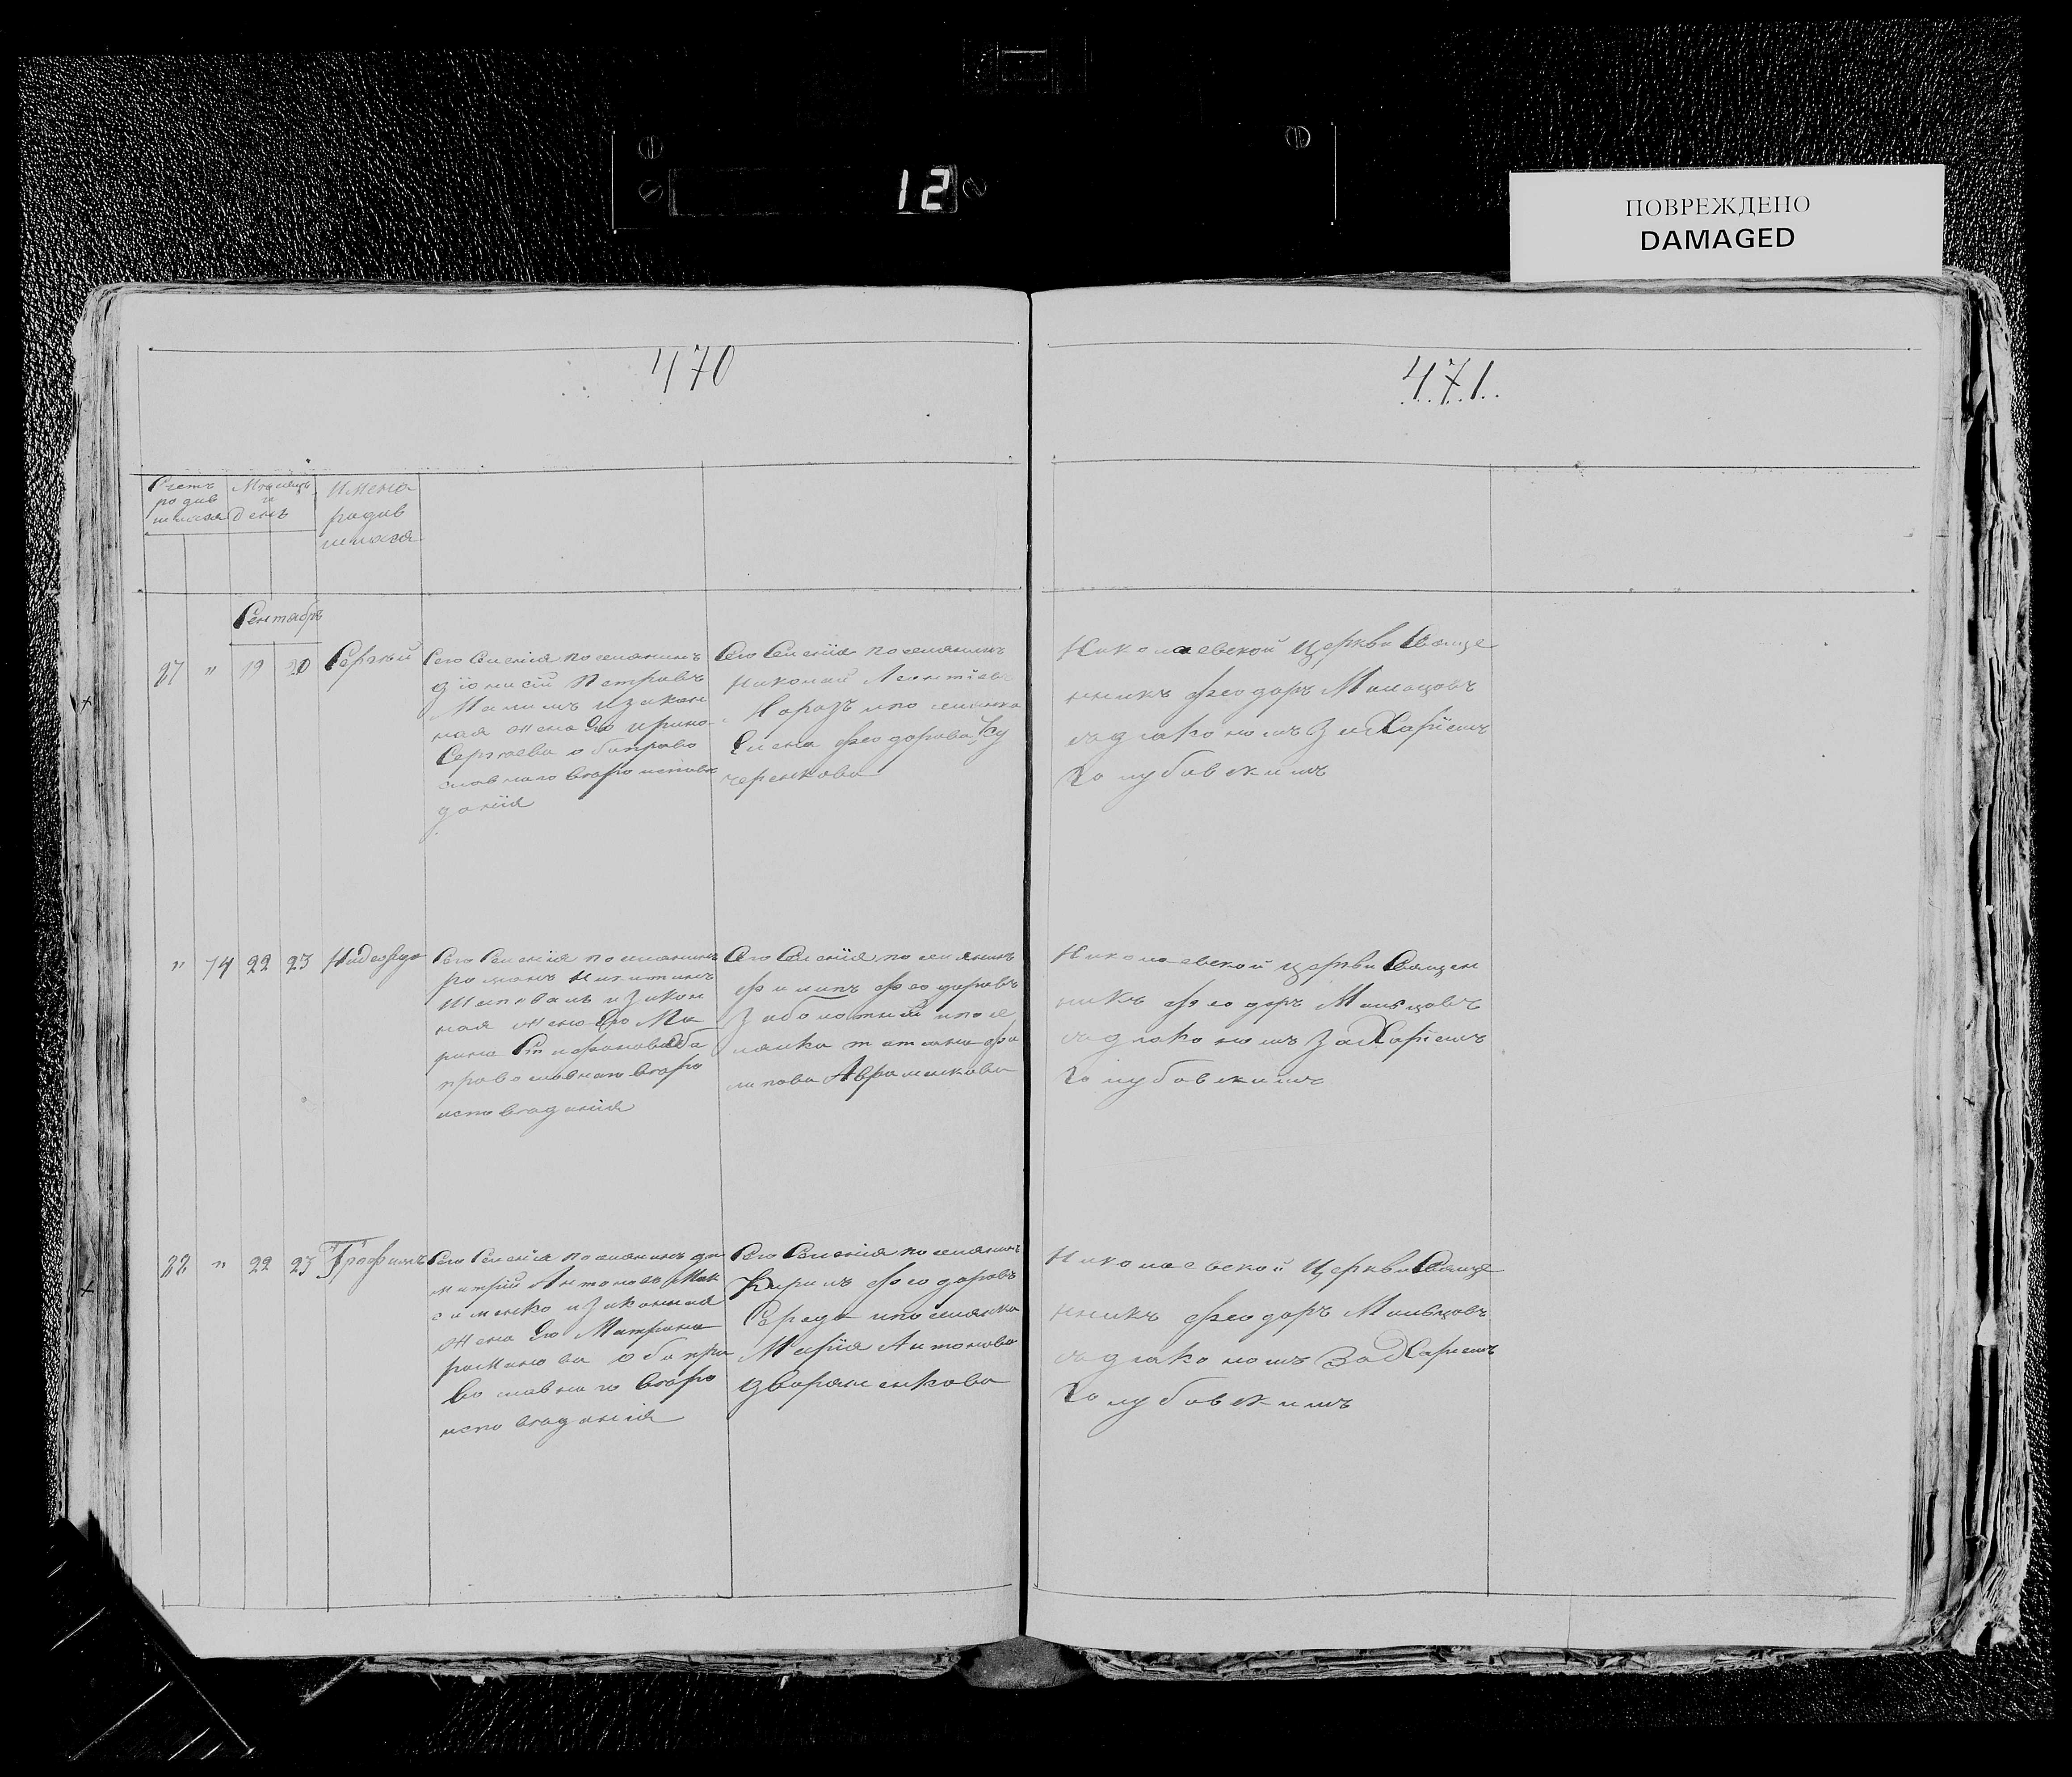 12
ПОВРЕЖДЕНО
DAMAGED
470
471.
Счетъ
родив
шихся
Мѣсяцъ
и
день
Имена
родив
шихся
Сентябрь
27 " 19 20 Сергий
Сего Селенія поселянинъ
Діонисій Петровъ
и закон
ная жена Его Ирина
Сергѣева оба право
славнаго вѣроисповѣ
данія
Сего Селенія поселянинъ
Николай Леонтіевъ
Корозъ и поселянка
Елена Феодорова Ку
черенкова
Николаевской Церкви Свяще
нникъ Феодоръ Мальцовъ
съ дьякономъ Захаріемъ
Голубовскимъ
" 74 22 23 Надежда
Сего Селенія поселянинъ
Романъ Никитинъ
Шаповалъ и Закон
ная жена Его Ма
рина Стефанова оба
православнаго вѣро
исповѣданія
Сего Селенія поселянинъ
Филипъ Феодоровъ
Заболотный и посе
лянка Татіана Фи
липова Авраменкова
Николаевской Церкви Священ
никъ Феодоръ Мальцовъ
съ дьякономъ Захаріемъ
Голубовскимъ
22 " 22 23 Трофимъ
Сего Селенія поселянинъ Ди
митрій Антоновъ Мак
сименко и Законная
жена Его Матрина
Романова оба пра
вославнаго вѣро
исповѣданія
Сего Селенія поселянинъ
Кирилъ Феодоровъ
Середа и поселянка
Марія Антонова
Дворяненкова
Николаевской Церкви Свяще
нникъ Феодоръ Мальцовъ
съ дьякономъ Захаріемъ
Голубовскимъ